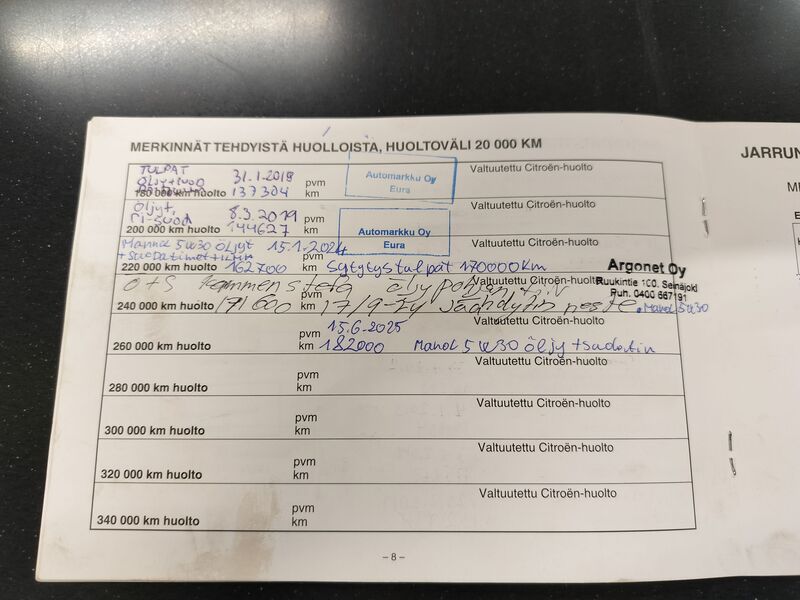 MERKINNÄT TEHDYISTÄ HUOLLOISTA, HUOLTOVÄLI 20 000 KM
JARRUN
TULPAT 31.1.2018 pvm Automarkku Oy Eura Valtuutettu Citroën-huolto
180 000 km huolto 137304 km
Öljyt, 8.3.2019 pvm Automarkku Oy Eura Valtuutettu Citroën-huolto
200 000 km huolto 144627 km
Mannol 5w30 öljyt 15.1.2024 Valtuutettu Citroën-huolto
220 000 km huolto 162700 km Sytytystulpat 170000km
Argonet Oy
Ruukintie 100. Seinäjoki
Puh. 0400 667191
Ö+S Valtuutettu Citroën-huolto
240 000 km huolto 171600 17/9-24 Jäähdytin neste. Manol 5w30
pvm 15.6.2025 Valtuutettu Citroën-huolto
260 000 km huolto km 182000 Manol 5w30 öljy + suodatin
pvm Valtuutettu Citroën-huolto
280 000 km huolto km
pvm Valtuutettu Citroën-huolto
300 000 km huolto km
pvm Valtuutettu Citroën-huolto
320 000 km huolto km
pvm Valtuutettu Citroën-huolto
340 000 km huolto km
– 8 –